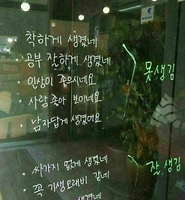 착하게 생겼네
공부 잘하게 생겼네
인상이 좋으시네요
사람 좋아 보이네요
남자답게 생겼어요
못생김
싸가지 없게 생겼네
꼭 기생오래비 같네
생겼네
잘생김